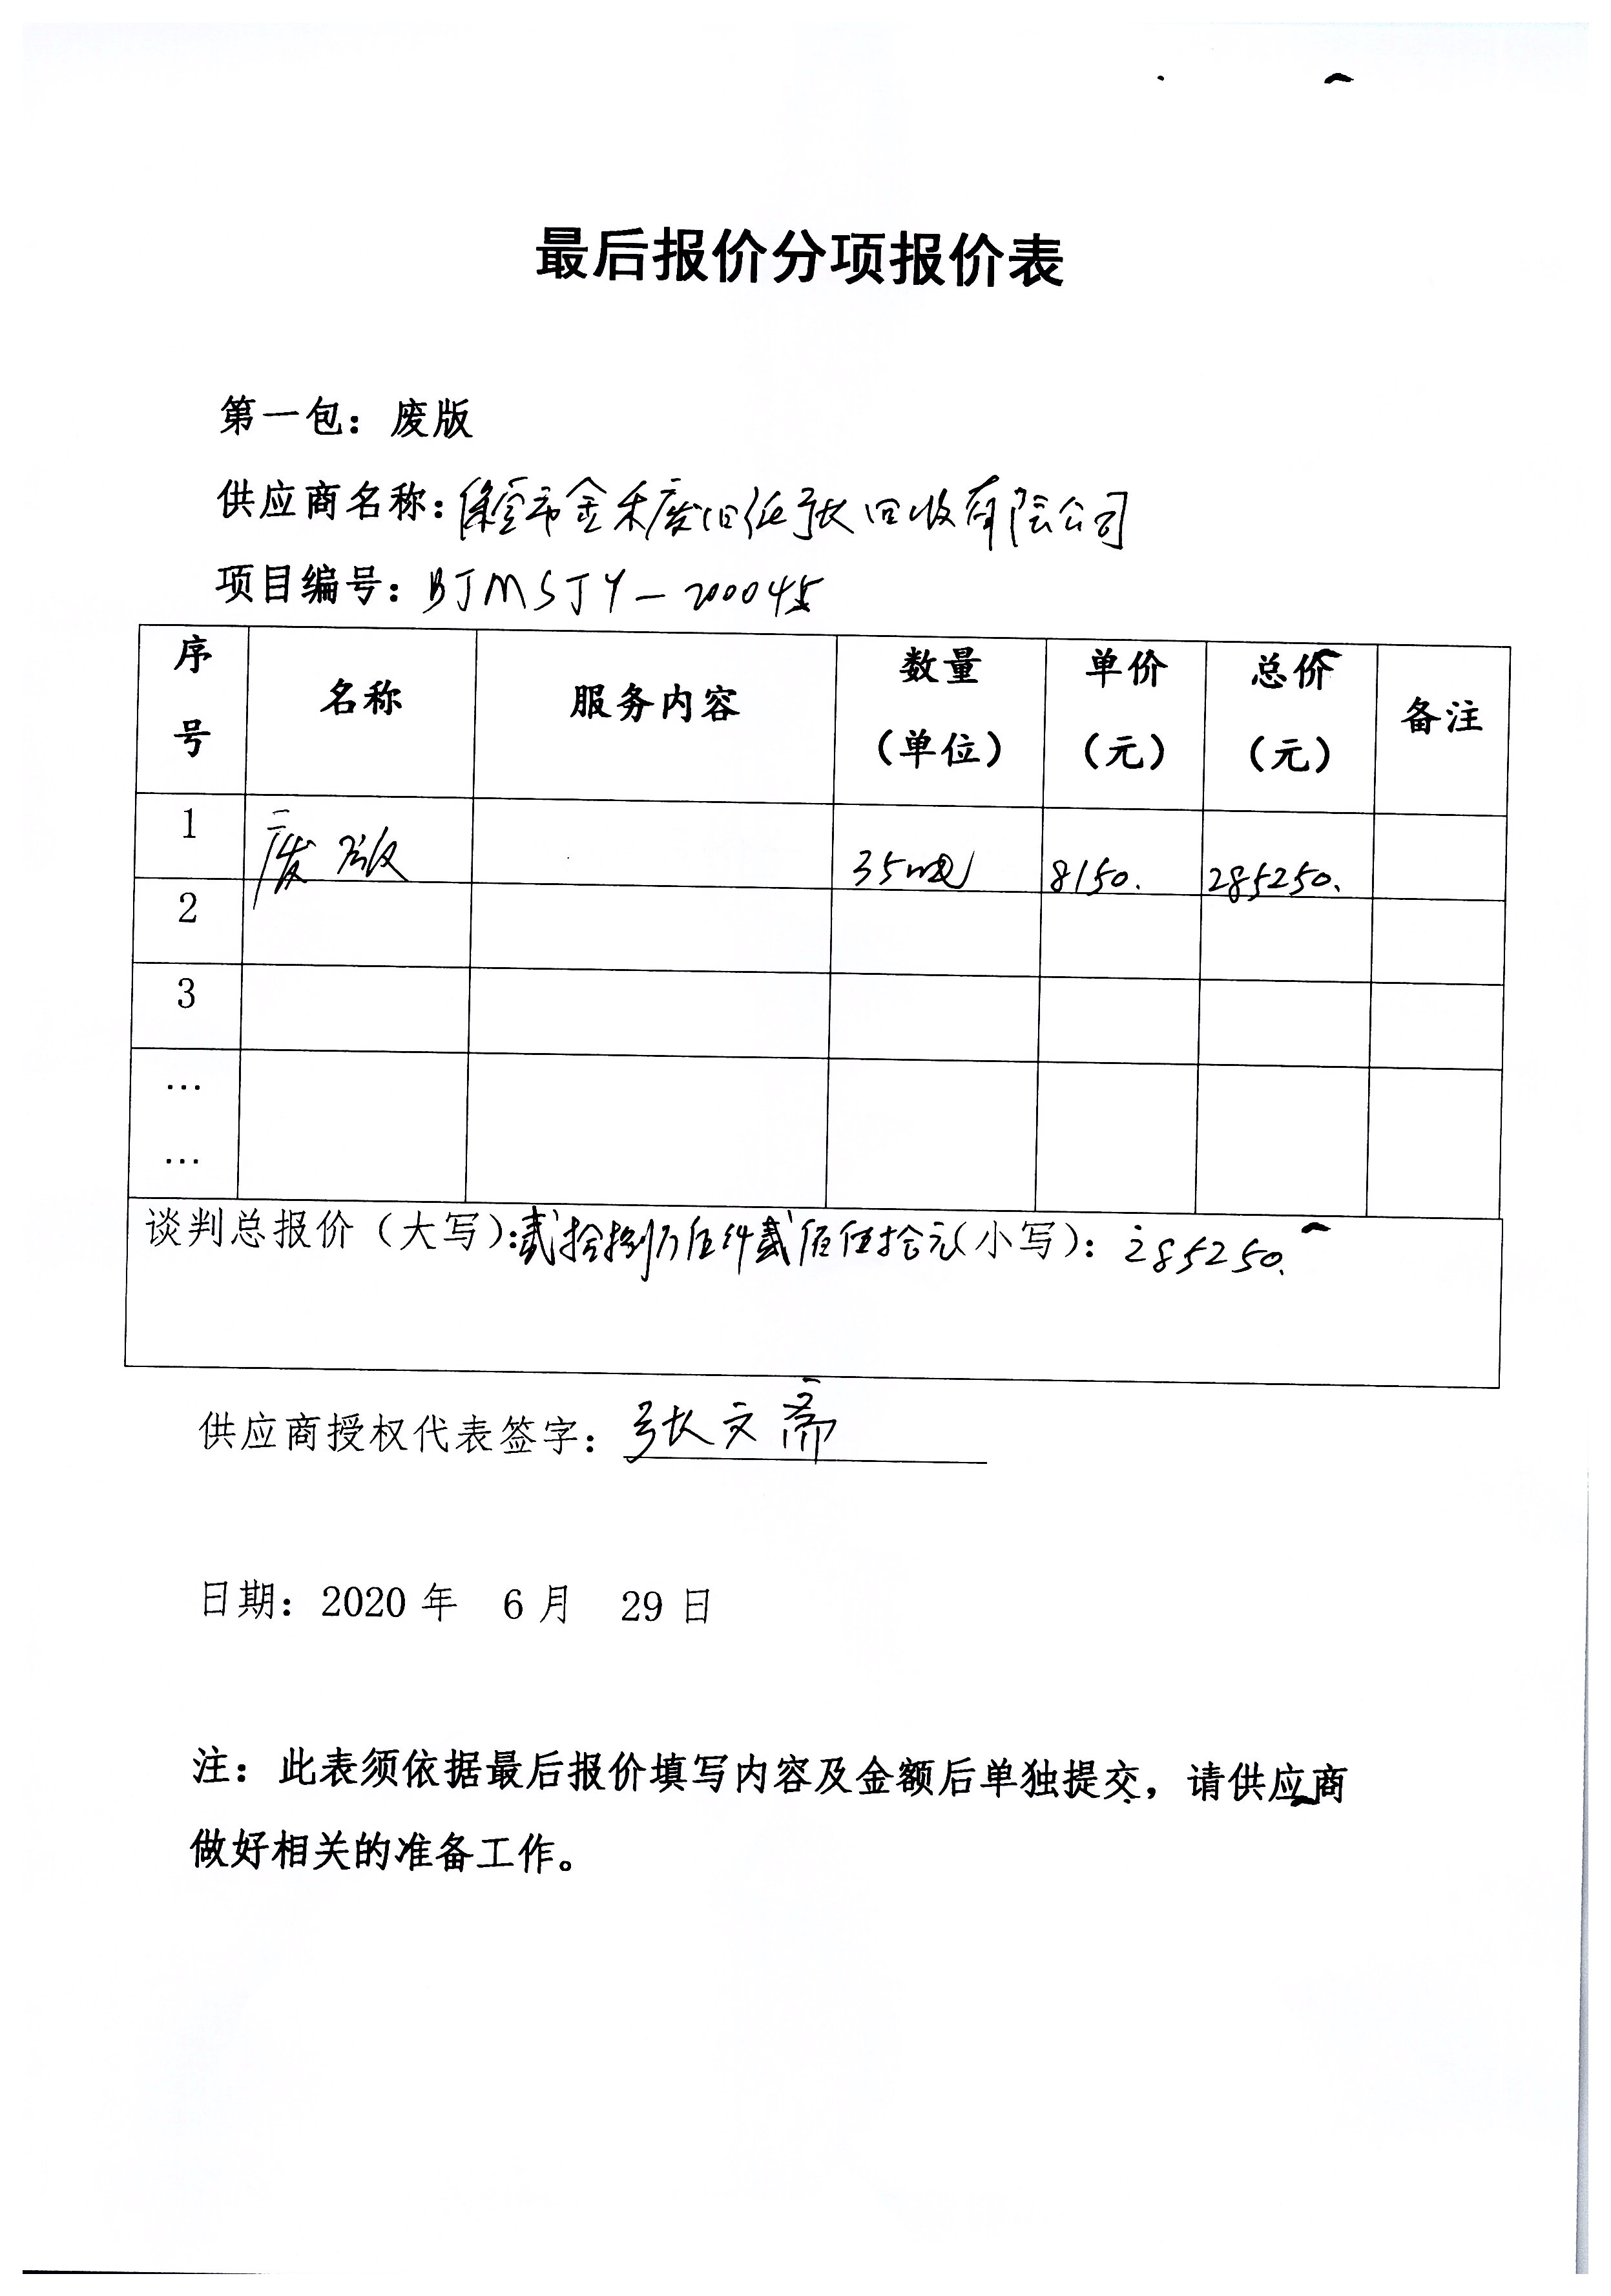 最后报价分项报价表
第一包：废版
供应商名称：保定市金禾废旧纸张回收有限公司
项目编号：BJMSJY-200045
序号 名称 服务内容 数量（单位） 单价（元） 总价（元） 备注
1 废版 35吨 8150. 285250.
2
3
…
…
谈判总报价（大写）：贰拾捌万伍仟贰佰伍拾元（小写）：285250.
供应商授权代表签字：张文斋
日期：2020年 6月 29日
注：此表须依据最后报价填写内容及金额后单独提交，请供应商
做好相关的准备工作。